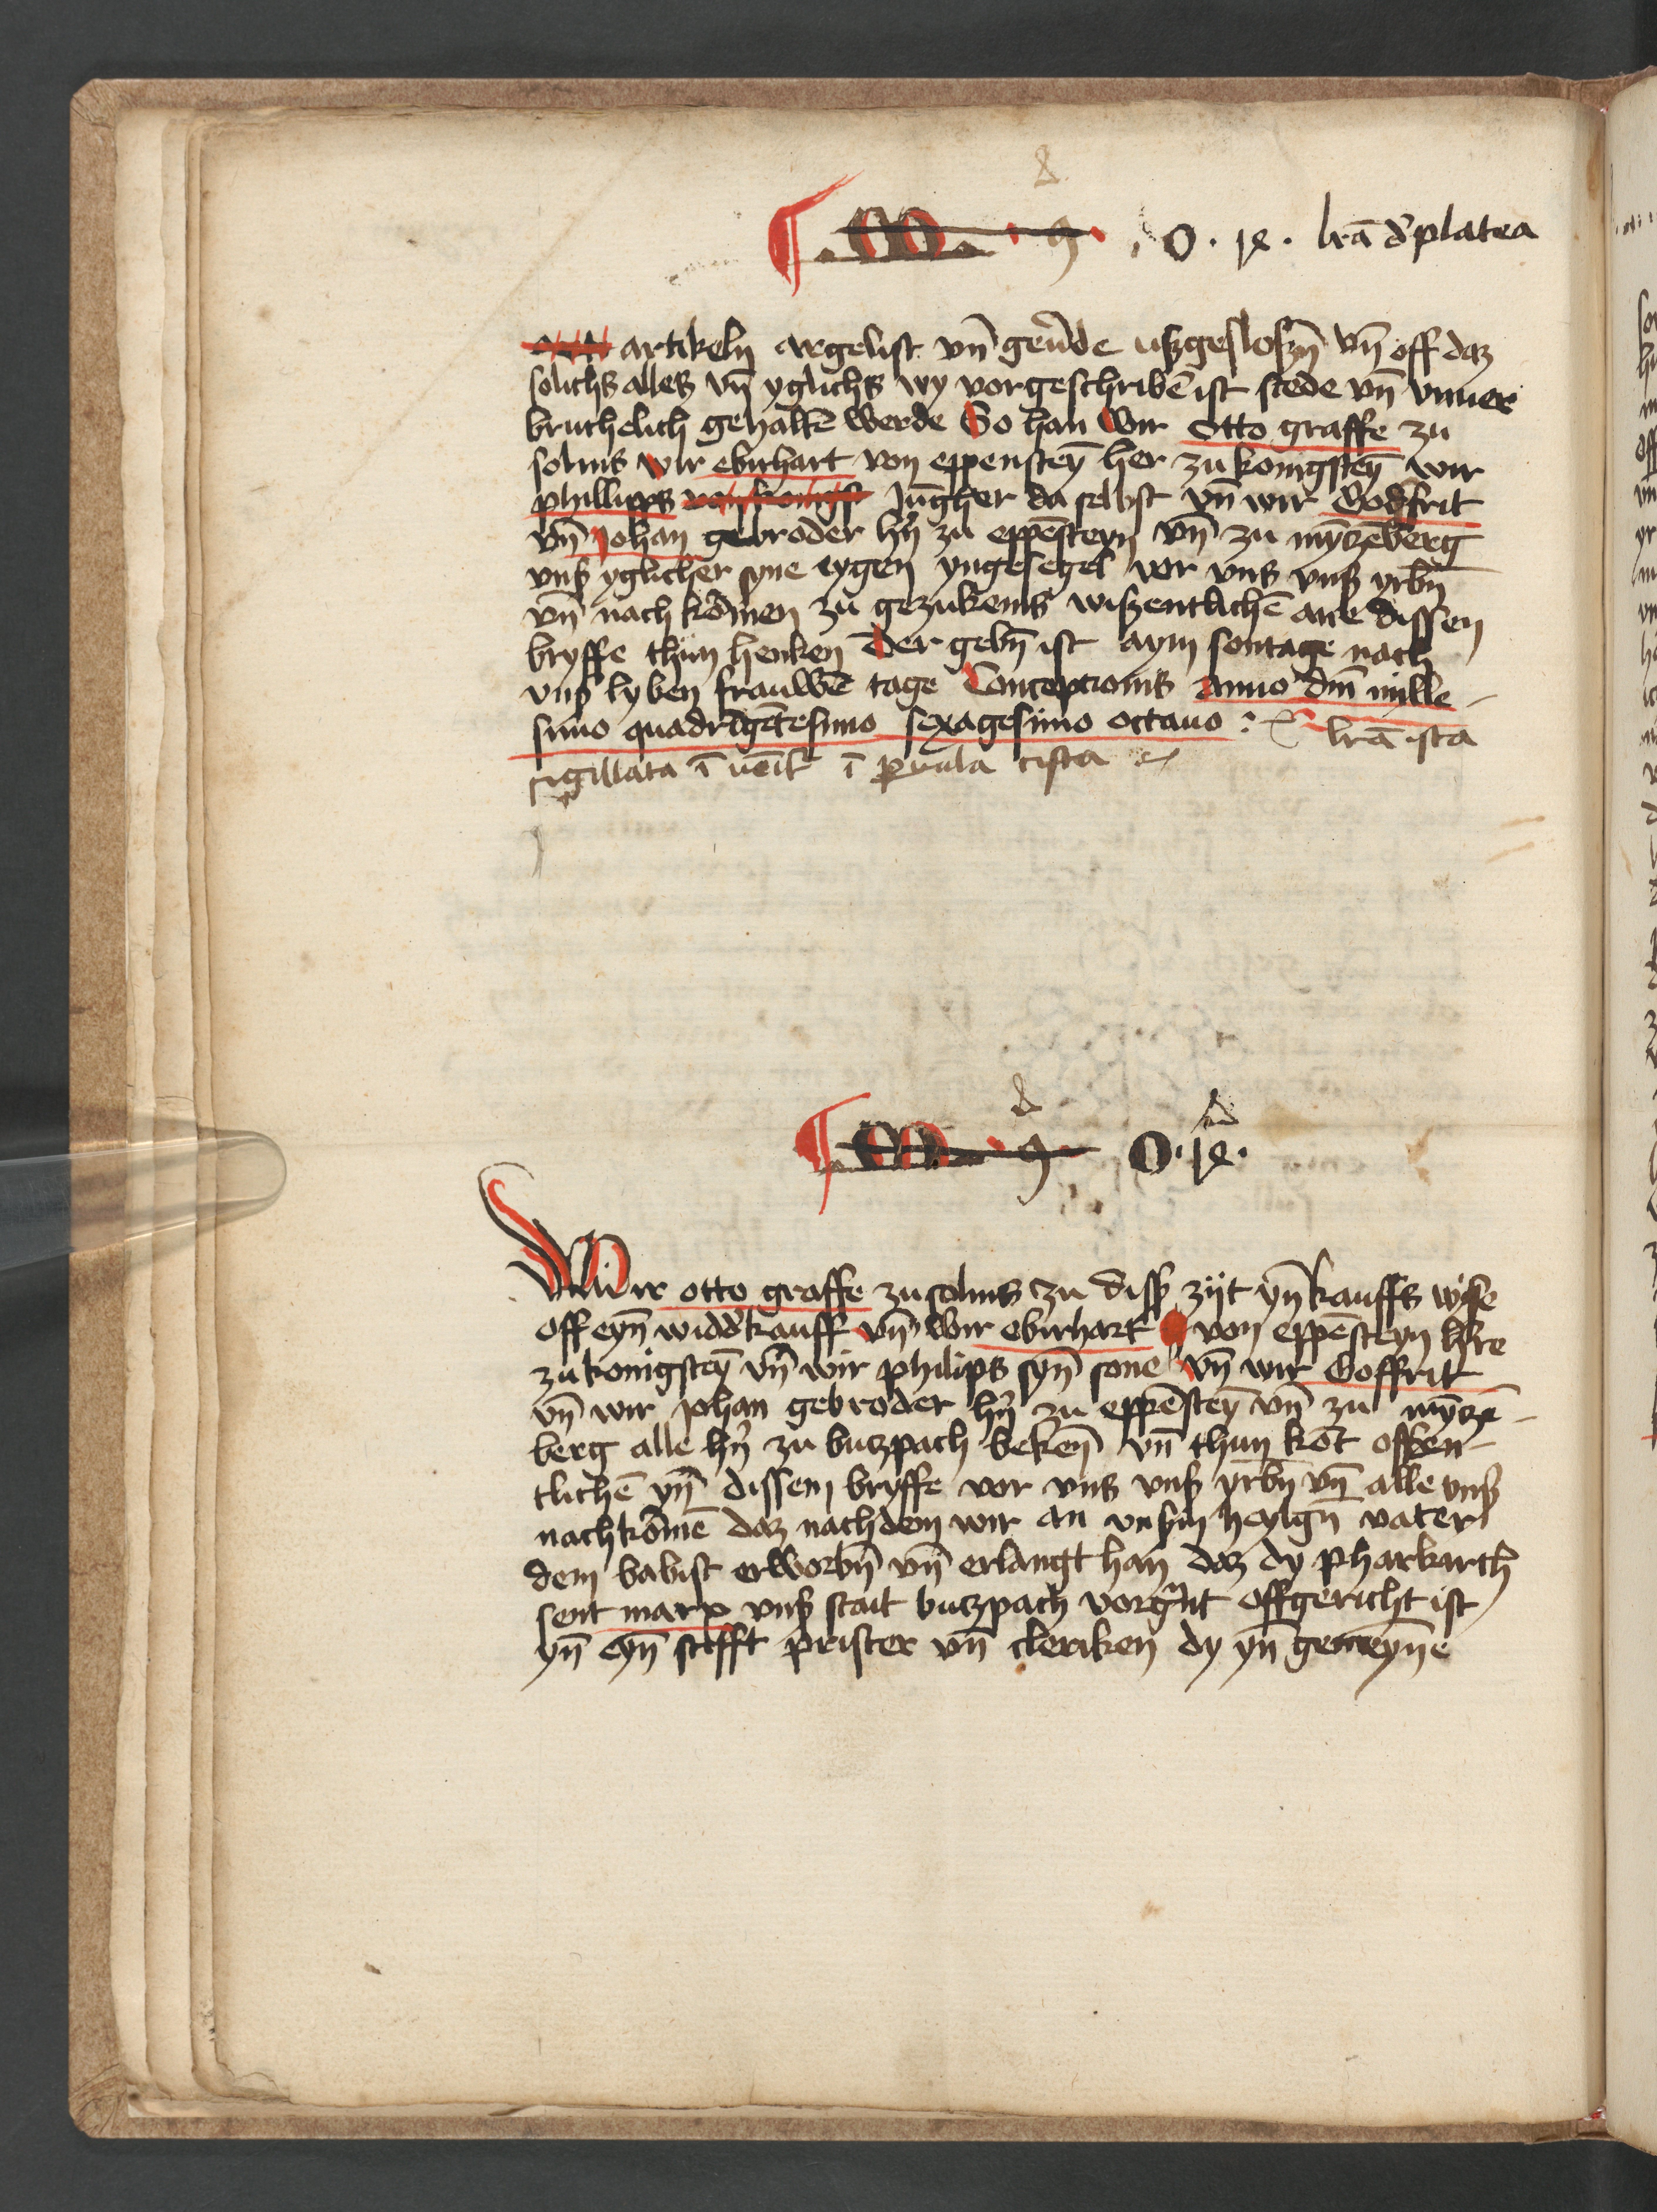 O . ix . lrā d' platea
artikeln argelist vn̄ geu̾de uszgeslosn̄ vn̄ off daz
solichs alles vn̄ yglichs wy vorgeschribē ist stede vn̄ vnuer
bruchelich gehaltē werde So han wir Otto graffe zu
solms wir ebirhart von eppensteȳ her zu konigsteȳ wir
phillipps Jūgher da selbst vn̄ wir Godfrit
vn̄ Johan gebroder hn̄ zu eppēsteyn vn̄ zu mȳczēberg
vnß yglicher syne eygen yngesegel vor vns vnß yrbn̄
vn̄ nach kōmen zu gezukenis wiszentlichē ane dissen
bryffe thun henken Der gebn̄ ist aym sontage nach
vnß lyben frauwē tage Conceptionis Anno dm̄ mille
simo quadrīgētesimo sexagesimo octauo : lrā ista
sigillata ī uēit̄ ī p̱uula cista
O . ix .
Wir otto graffe zu solms zu diss̾ zijt yn̄ kauffs wise
off eyn̄ widd̾kauff vn̄ wir ebirhart von eppēsteyn h̾re
zu konigsteȳ vn̄ wir philips syn̄ sone vn̄ wir Goffrit
vn̄ wir Johan gebroder hn̄ zu eppēsteȳ vn̄ zu mȳczē
berg alle hn̄ zu butzpach bekēn̄ vn̄ thun kōt offen
tlichē yn̄ dissem bryffe vor vns vnß yrbn̄ vn̄ alle vnß
nachkōmē daz nachdem wir an vnßm heylgn̄ vater
dem babist erworbn̄ vn̄ erlangt han daz dy pharkirch
sent marx vnß stait butzpach vorgn̄t offgericht ist
yn̄ eyn̄ stifft prister vn̄ cleriken dy yn̄ gemeyn̄e